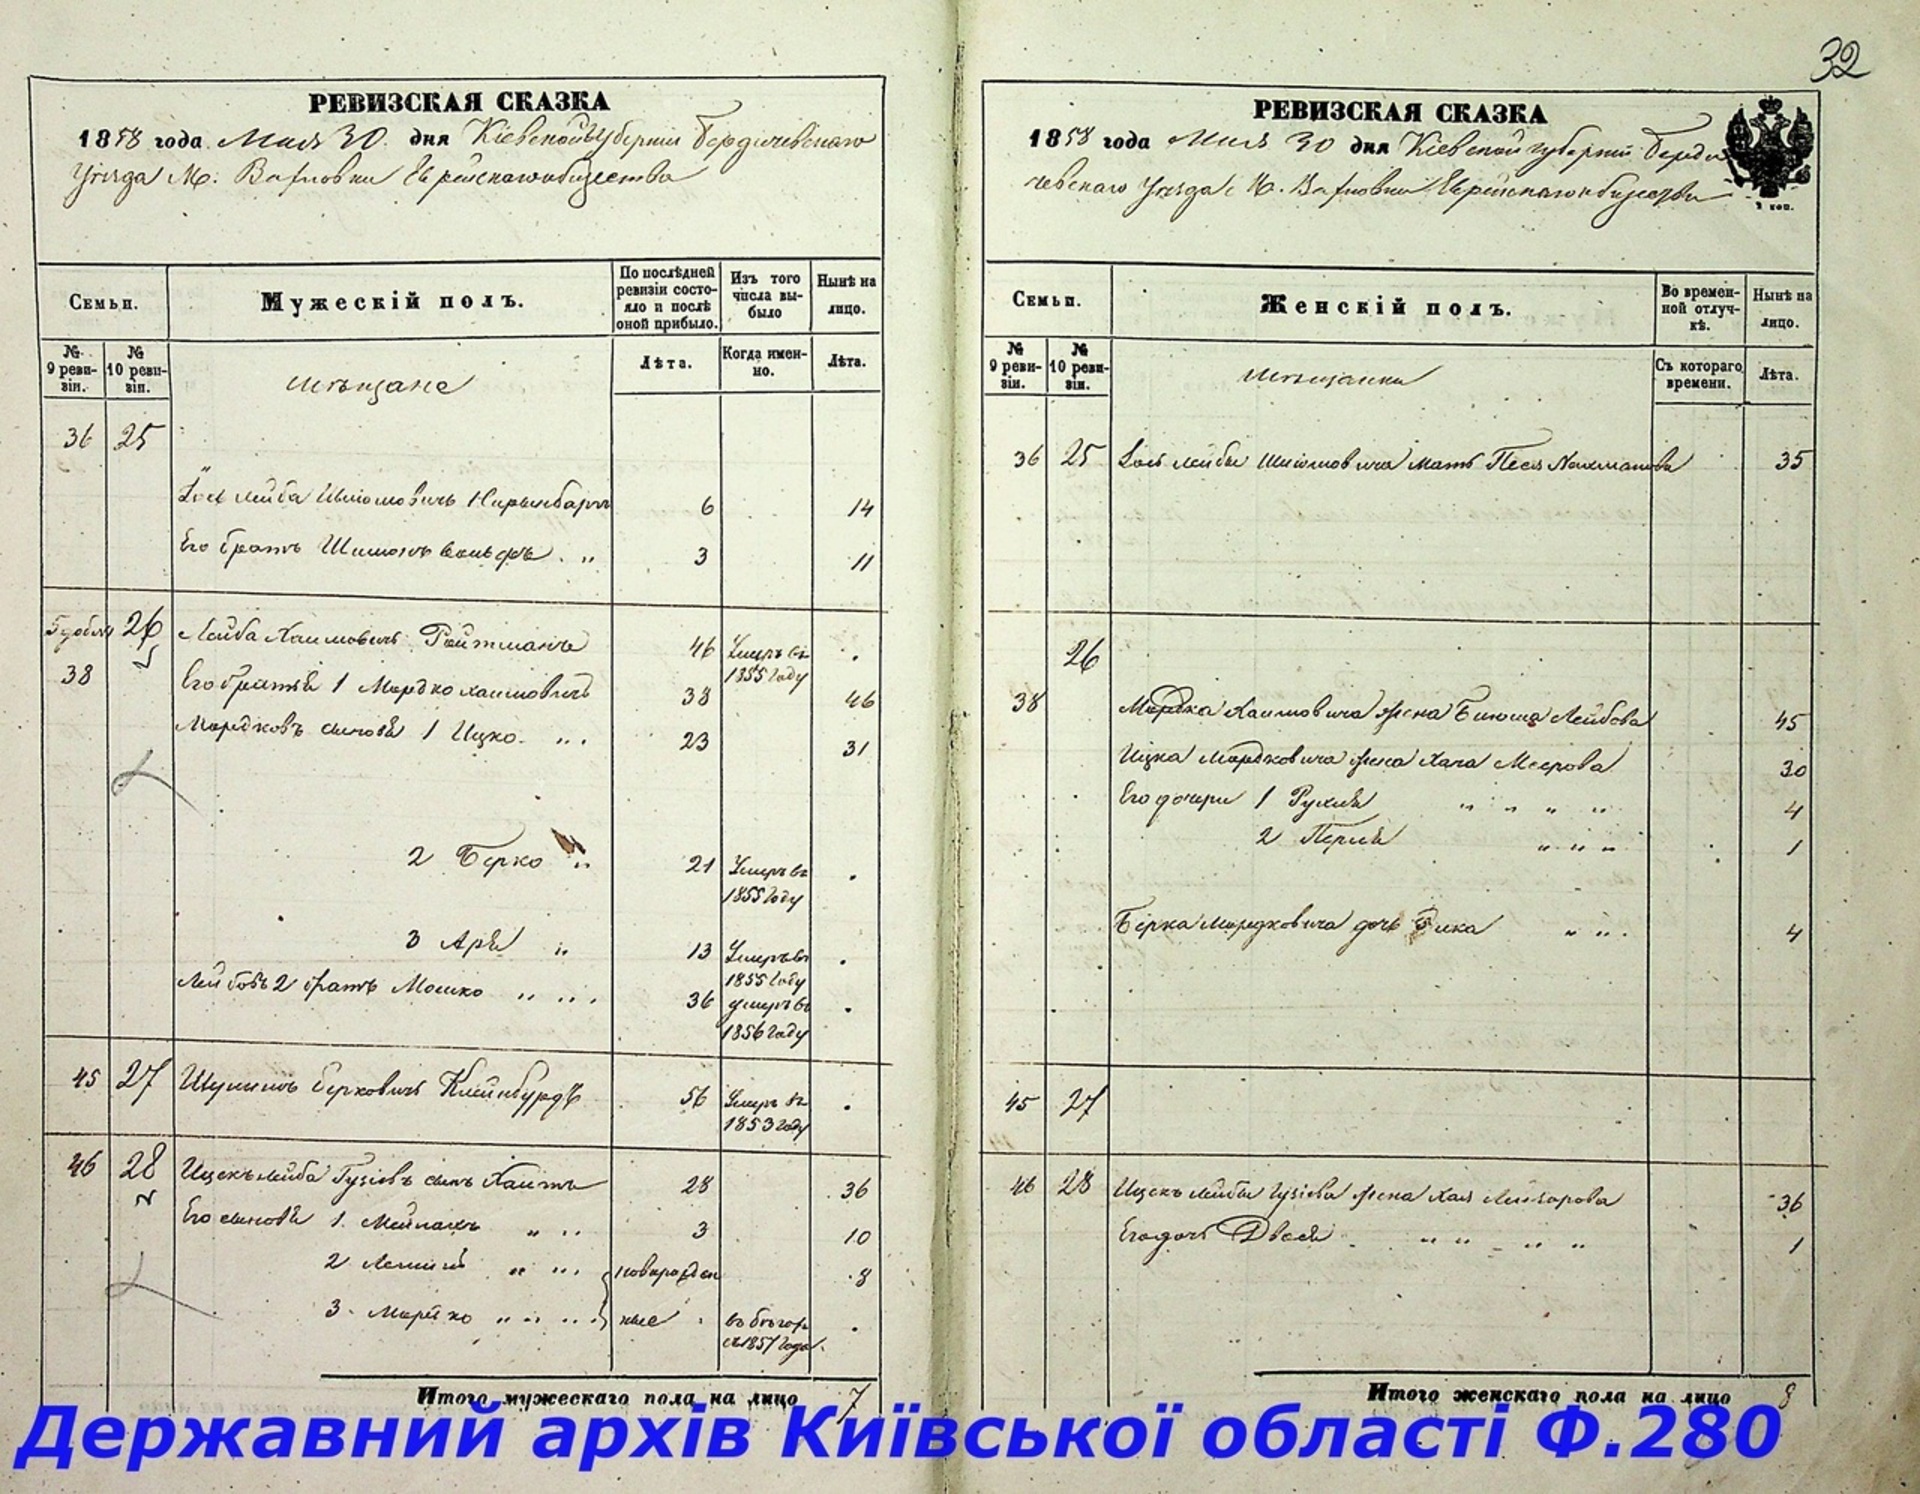 32
РЕВИЗСКАЯ СКАЗКА
1858 года Мая 30 дня Кіевской Губерніи Бердичевскаго
Уезда М. Вахновки Еврейскаго общества
Семьи.
Мужескій полъ.
По послѣдней ревизіи состояло и послѣ оной прибыло.
Изъ того числа выбыло
Нынѣ на лицо.
№ 9 ревизіи.
№ 10 ревизіи.
мѣщане
Лѣта.
Когда именно.
Лѣта.
36 25
Лейба Шиомовичь 6 14
Его братъ Шимонъ Вольфъ 3 11
26 Лейба Хаимовичь Ройтманъ 46 Умеръ въ 1855 году
38 Его братья 1 Мордко Хаимовичь 38 46
Мордковъ сыновья 1 Ицко 23 31
2 Берко 21 Умеръ въ 1855 году
3 Арья 13 Умеръ въ 1855 году
Лейбовъ 2 братъ Мошко 36 умеръ въ 1856 году
45 27 Шулимъ Берковичь Клейнбурдъ 56 Умеръ въ 1853 году
46 28 Ицекъ Лейба Гузіевъ сынъ Хаитъ 28 36
Его сыновья 1 Мейлахъ 3 10
2 новорожден 8
3 Мордко ные въ бѣгахъ съ 1857 года
Итого мужескаго пола на лицо 7
РЕВИЗСКАЯ СКАЗКА
1858 года Мая 30 дня Кіевской губерніи Берди
чевскаго Уезда М. Вахновки Еврейскаго общества
2 коп.
Семьи.
Женскій полъ.
Во временной отлучкѣ.
Нынѣ на лицо.
№ 9 ревизіи.
№ 10 ревизіи.
мѣщанки
Съ котораго времени.
Лѣта.
36 25 Лейбы Шиомовича мать Песя Нахманова 35
26
38 Мордка Хаимовича жена Лейбова 45
Ицка Мордковича жена Хана Меерова 30
Его дочери 1 Рухля 4
2 Перля 1
Берка Мордковича дочь 4
45 27
46 28 Ицекъ Лейбы Гузіева жена Хая Лейзорова 36
Его дочь Двося 1
Итого женскаго пола на лицо 8
Державний архів Київської області Ф.280